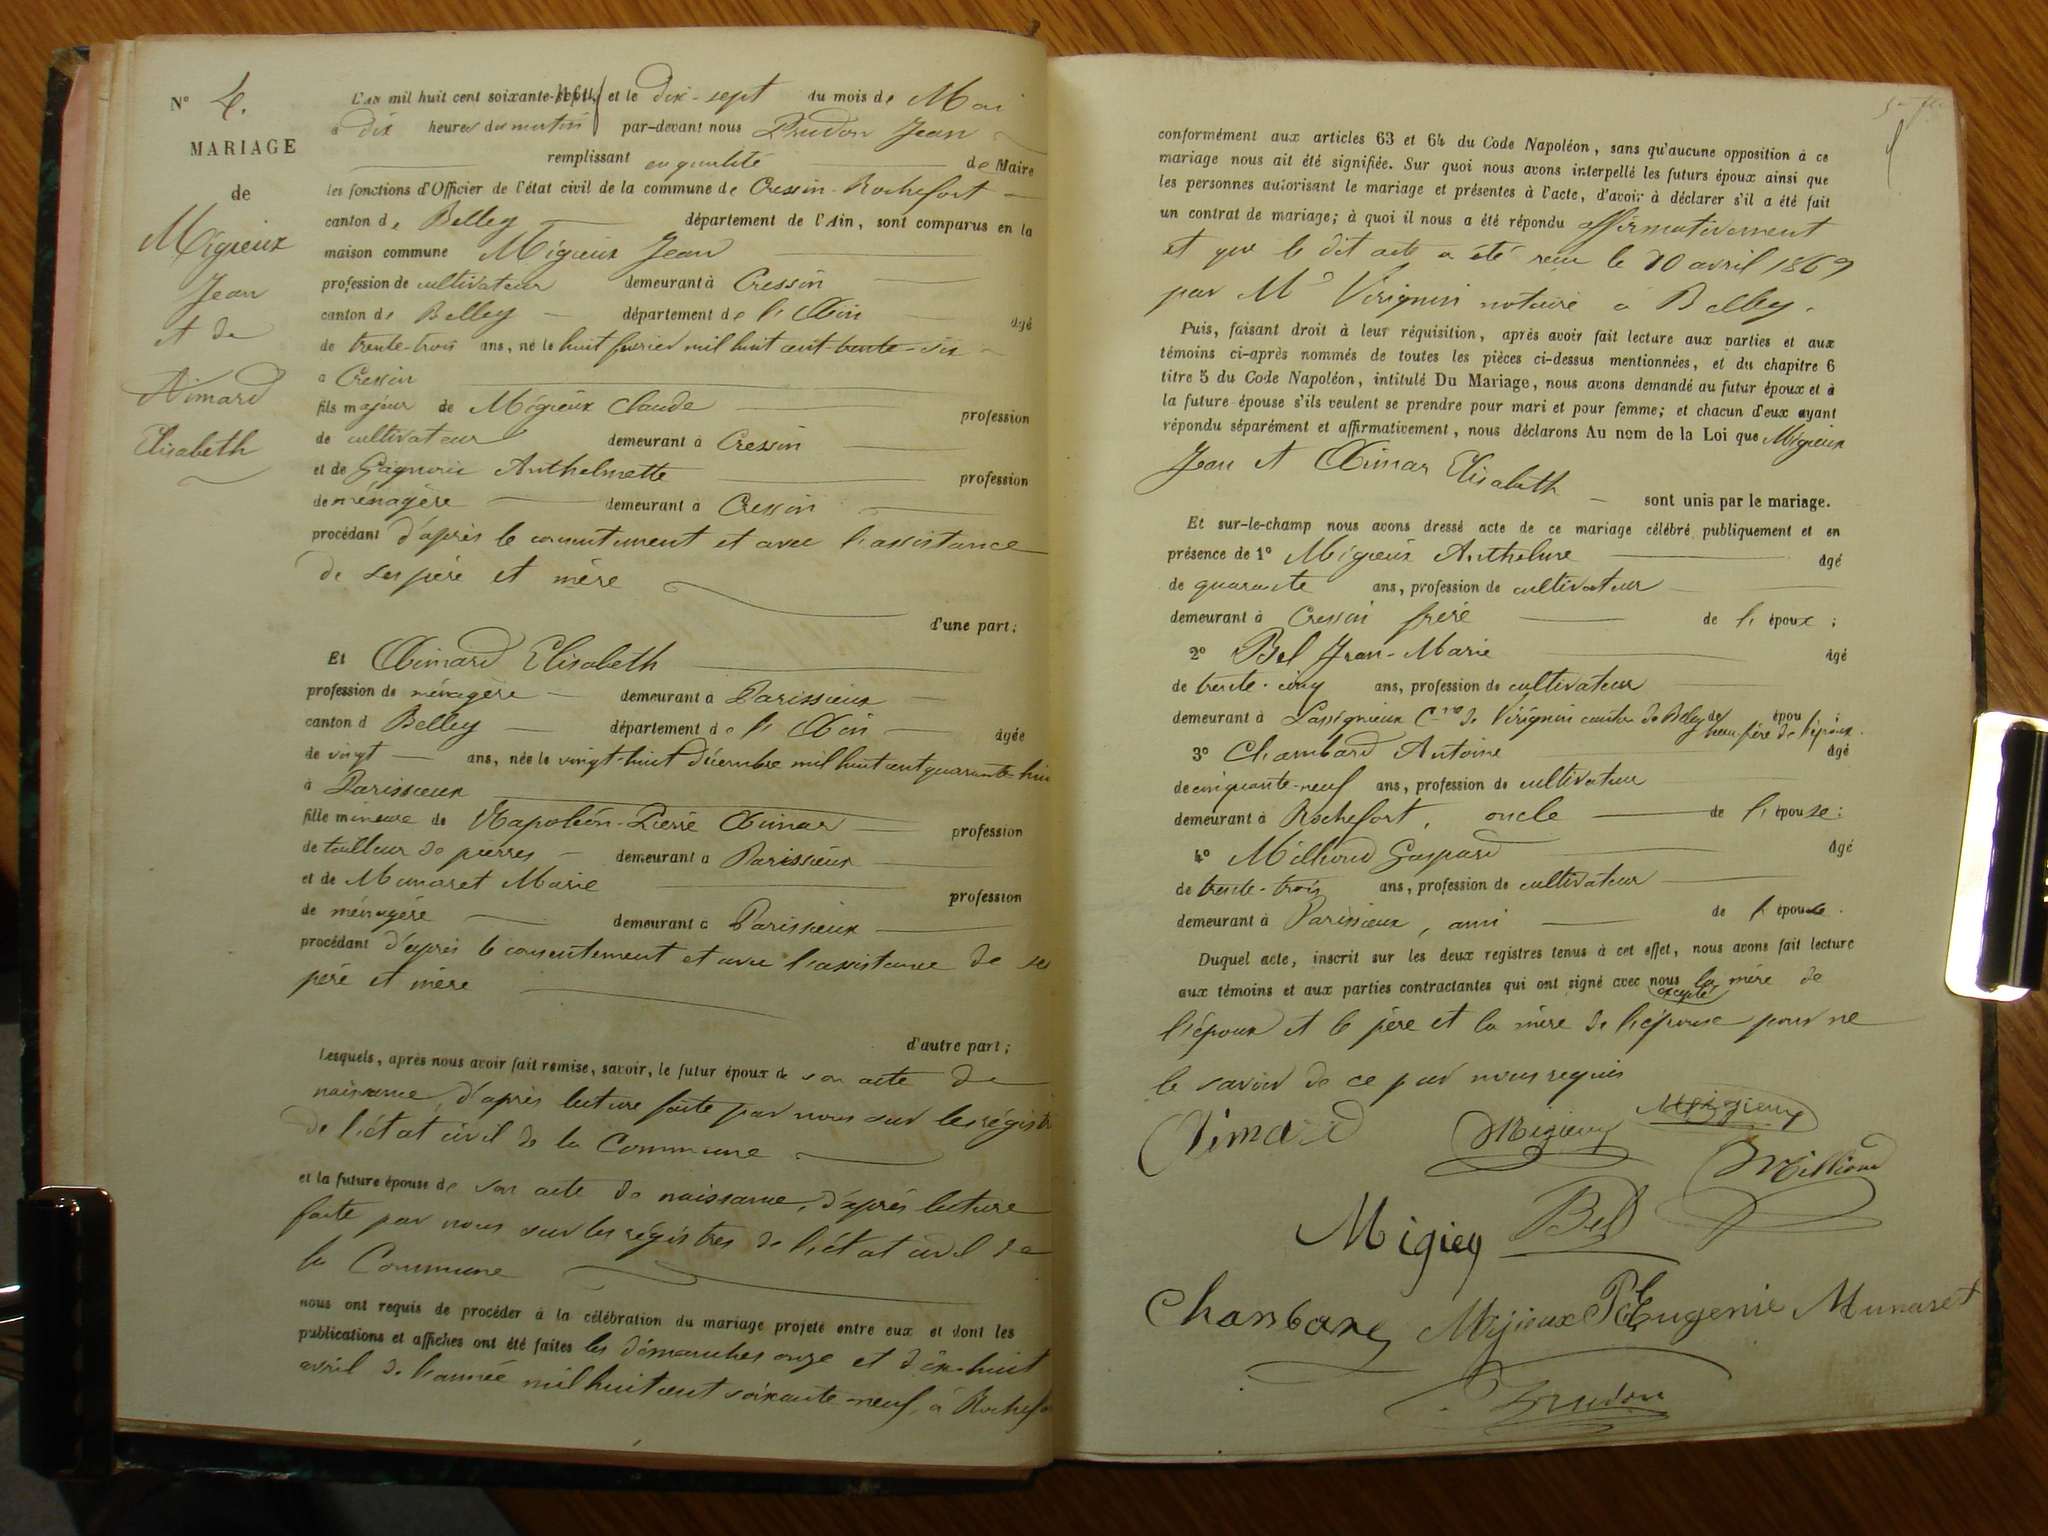 N° 4.
MARIAGE
de
Migieux
Jean
et de
Aimard
Elisabeth
L'AN mil huit cent soixante-neuf et le dix-sept du mois de Mai
à dix heures du matin par-devant nous Prudon Jean
remplissant en qualité de Maire
les fonctions d'Officier de l'état civil de la commune de Cressin-Rochefort
canton de Belley département de l'Ain, sont comparus en la
maison commune Migieux Jean
profession de cultivateur demeurant à Cressin
canton de Belley département de l'Ain âgé
de trente-trois ans, né le huit février mil huit cent trente-six
à Cressin
fils majeur de Migieux Claude profession
de cultivateur demeurant à Cressin
et de Anthelmette profession
de ménagère demeurant à Cressin
procédant d'après le consentement et avec l'assistance
de ses père et mère
d'une part;
Et Aimard Elisabeth
profession de ménagère demeurant à Parissieux
canton d Belley département de l'Ain âgée
de vingt ans, née le vingt-huit décembre mil huit cent quarante-huit
à Parissieux
fille mineure de Napoléon-Pierre Aimar profession
de tailleur de pierres demeurant à Parissieux
et de Munaret Marie profession
de ménagère demeurant à Parissieux
procédant d'après le consentement et avec l'assistance de ses
père et mère
d'autre part;
Lesquels, après nous avoir fait remise, savoir, le futur époux de son acte de
naissance, d'après lecture faite par nous sur les régistres
de l'état civil de la Commune
et la future épouse de son acte de naissance, d'après lecture
faite par nous sur les régistres de l'état civil de
la Commune
nous ont requis de procéder à la célébration du mariage projeté entre eux et dont les
publications et affiches ont été faites les dimanches onze et dix-huit
avril de l'année mil huit cent soixante-neuf, à Rochefort
conformément aux articles 63 et 64 du Code Napoléon, sans qu'aucune opposition à ce
mariage nous ait été signifiée. Sur quoi nous avons interpellé les futurs époux ainsi que
les personnes autorisant le mariage et présentes à l'acte, d'avoir à déclarer s'il a été fait
un contrat de mariage; à quoi il nous a été répondu affirmativement
et que le dit acte a été reçu le 10 avril 1869
par Me Virignin notaire à Belley.
Puis, faisant droit à leur réquisition, après avoir fait lecture aux parties et aux
témoins ci-après nommés de toutes les pièces ci-dessus mentionnées, et du chapitre 6
titre 5 du Code Napoléon, intitulé Du Mariage, nous avons demandé au futur époux et à
la future épouse s'ils veulent se prendre pour mari et pour femme; et chacun d'eux ayant
répondu séparément et affirmativement, nous déclarons Au nom de la Loi que Migieux
Jean et Aimar Elisabeth sont unis par le mariage.
Et sur-le-champ nous avons dressé acte de ce mariage célébré publiquement et en
présence de 1° Migieux Anthelme âgé
de quarante ans, profession de cultivateur
demeurant à Cressin frère de l'époux;
2° Bel Jean-Marie âgé
de trente-cinq ans, profession de cultivateur
demeurant à Lassignieux Cne de Virignin canton de Belley de épou;
beau frère de l'époux.
3° Chambard Antoine âgé
de cinquante-neuf ans, profession de cultivateur
demeurant à Rochefort, oncle de l'épouse:
4° Millioud Gaspard âgé
de trente-trois ans, profession de cultivateur
demeurant à Parissieux, ami de l'épouse.
Duquel acte, inscrit sur les deux registres tenus à cet effet, nous avons fait lecture
aux témoins et aux parties contractantes qui ont signé avec nous excepté la mère de
l'époux et le père et la mère de l'épouse pour ne
le savoir de ce par nous requis
Aimard Migieux Migieux
Millioud
Migieu Bel
Chanbard Mijieux P Eugenie Munaret
Prudon